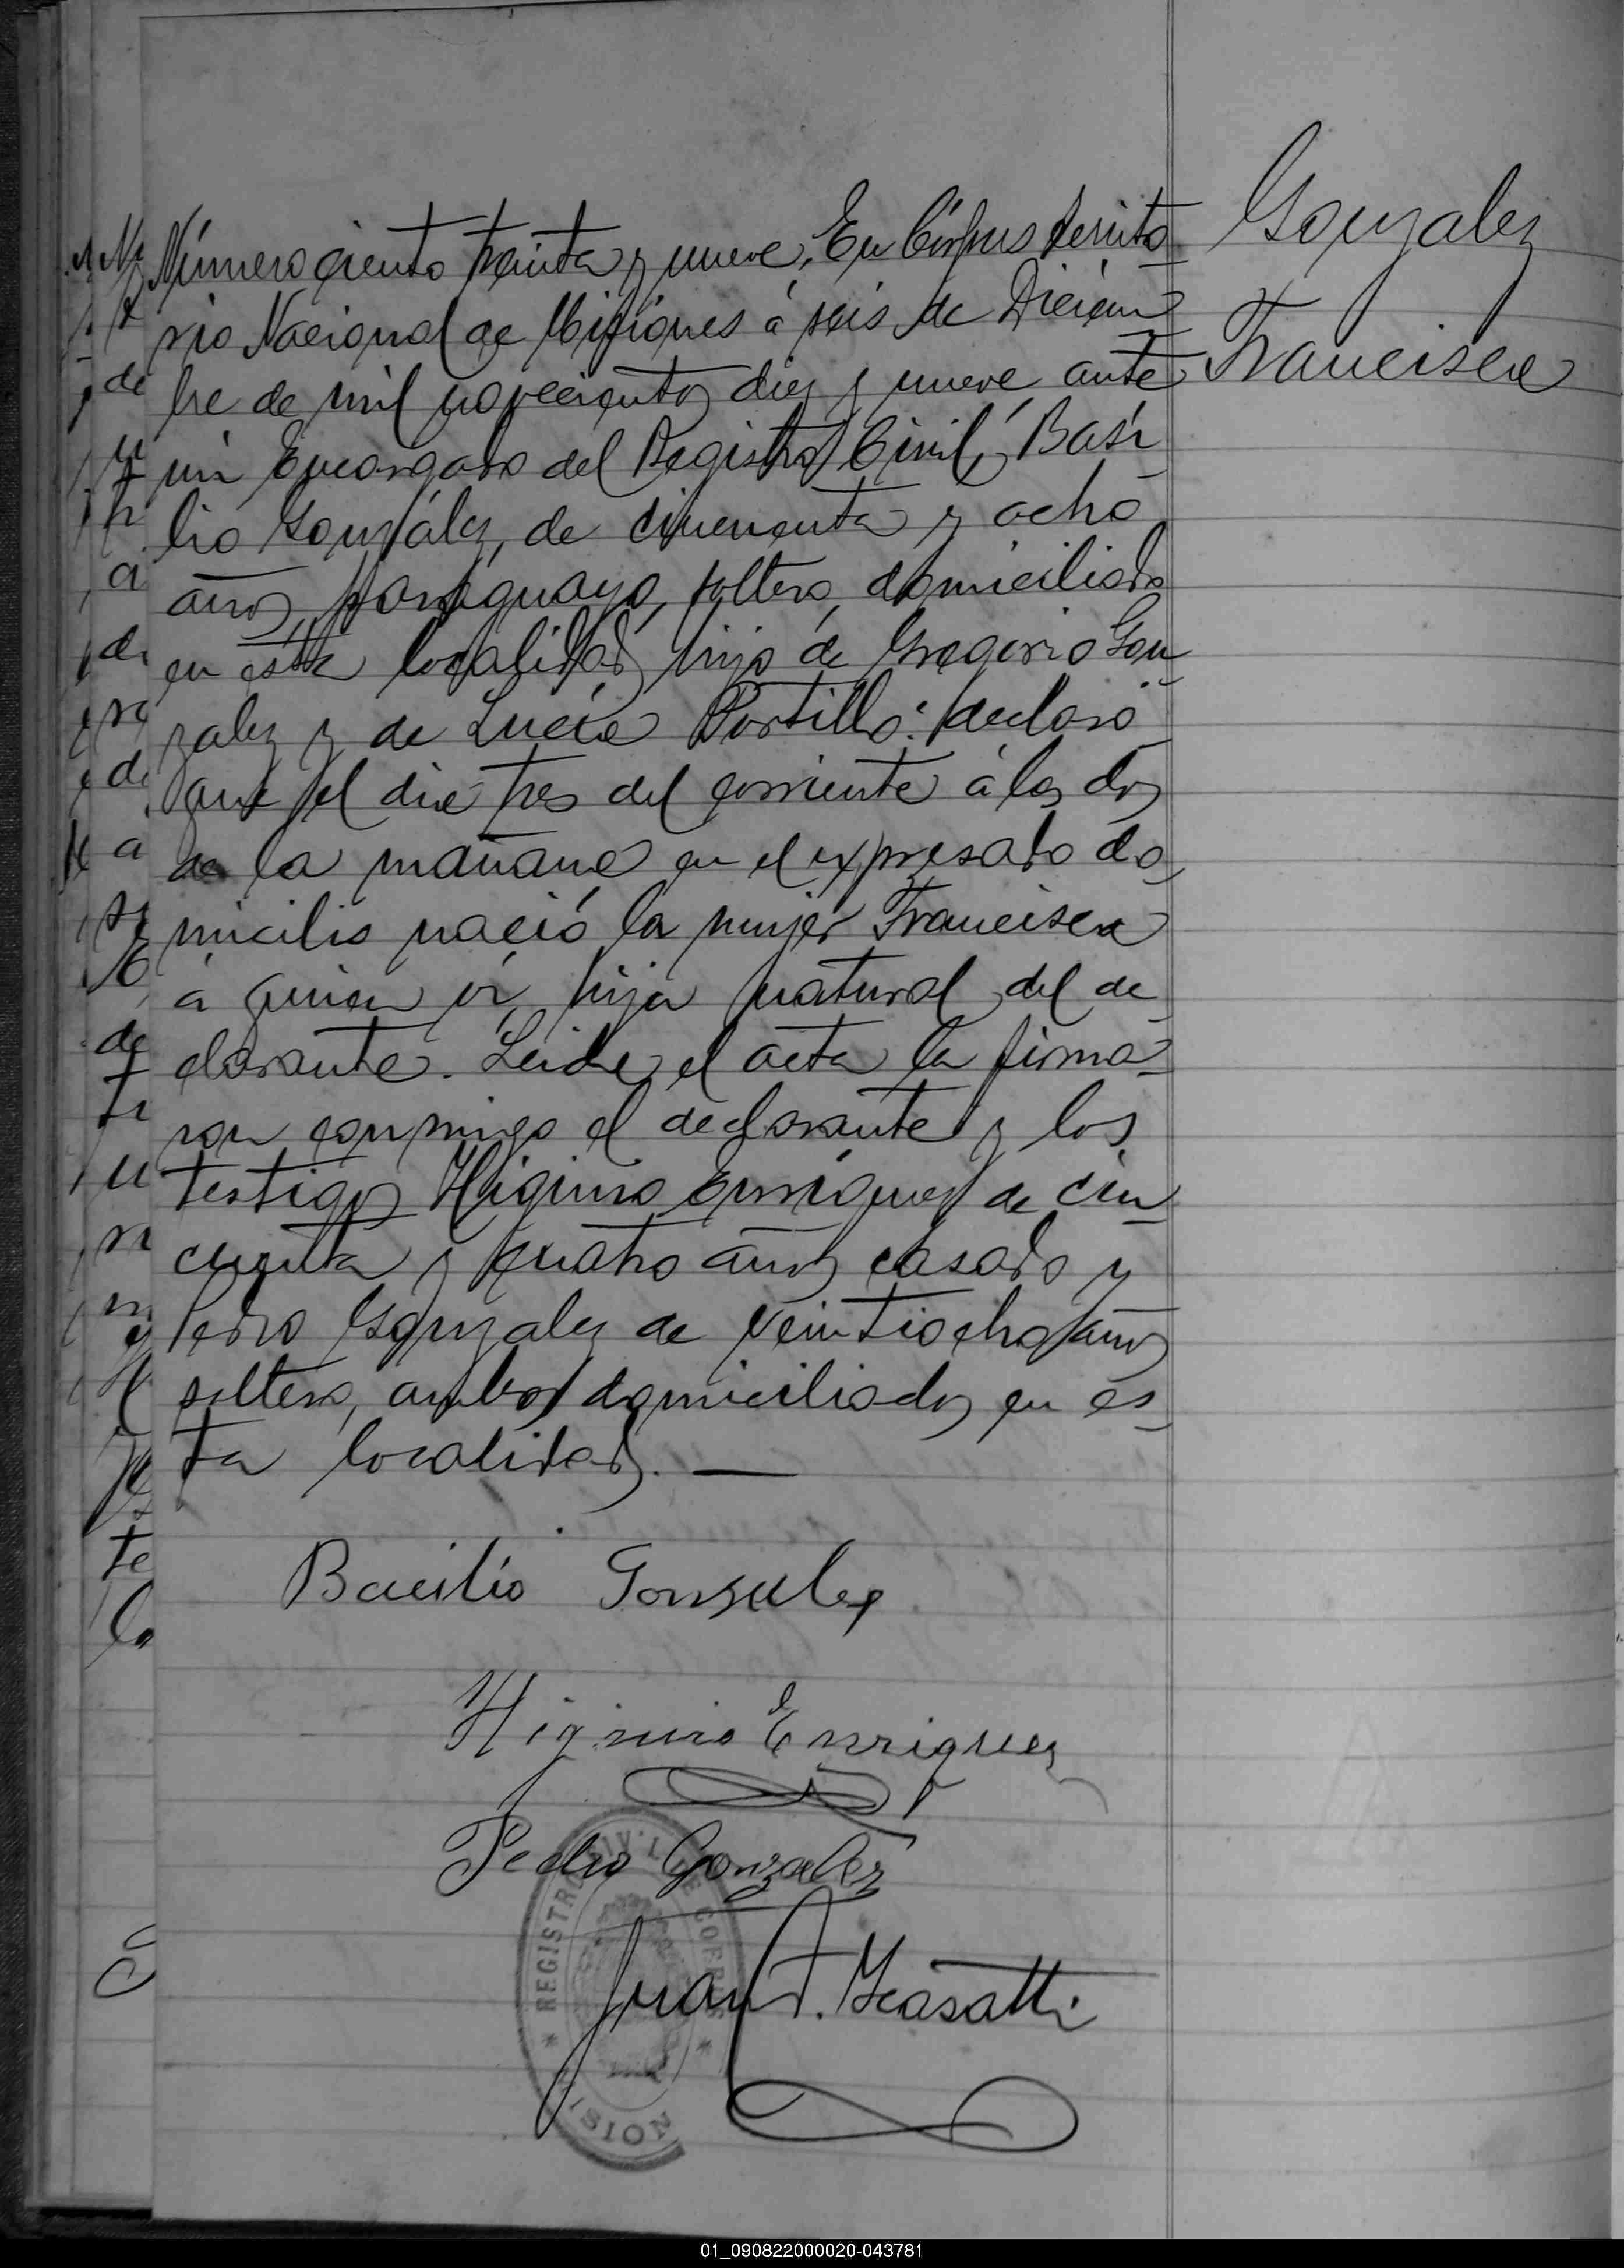 Número ciento treinta y nueve, En Córpus territo
rio Nacional de Misiones á seis de Diciem
bre de mil novecientos diez y nueve ante
mí Encargado del Registro Civil, Basi
lio González, de cincuenta y ocho
años, paraguayo, soltero, domiciliado
en esta localidad, hijo de Gregorio Gon
zalez y de Lucía Portillo: declaró
que el día tres del corriente á las dos
de la mañana en el expresado do
micilio nació la mujer Francisca
á quien ví, hija natural del de
clarante. Leida el acta la firma
ron conmigo el declarante y los
testigos Higinio Enríquez de cin
cuenta y cuatro años casado y
Pedro Gonzalez de veintiocho años
soltero, ambos domiciliados en es
ta localidad. —
Gonzalez
Francisca
Bacilio Gonzalez
Higinio Enriquez
Pedro Gonzalez
Juan
REGISTRO CIVIL DE CORPUS
MISIONES
01_090822000020-043781